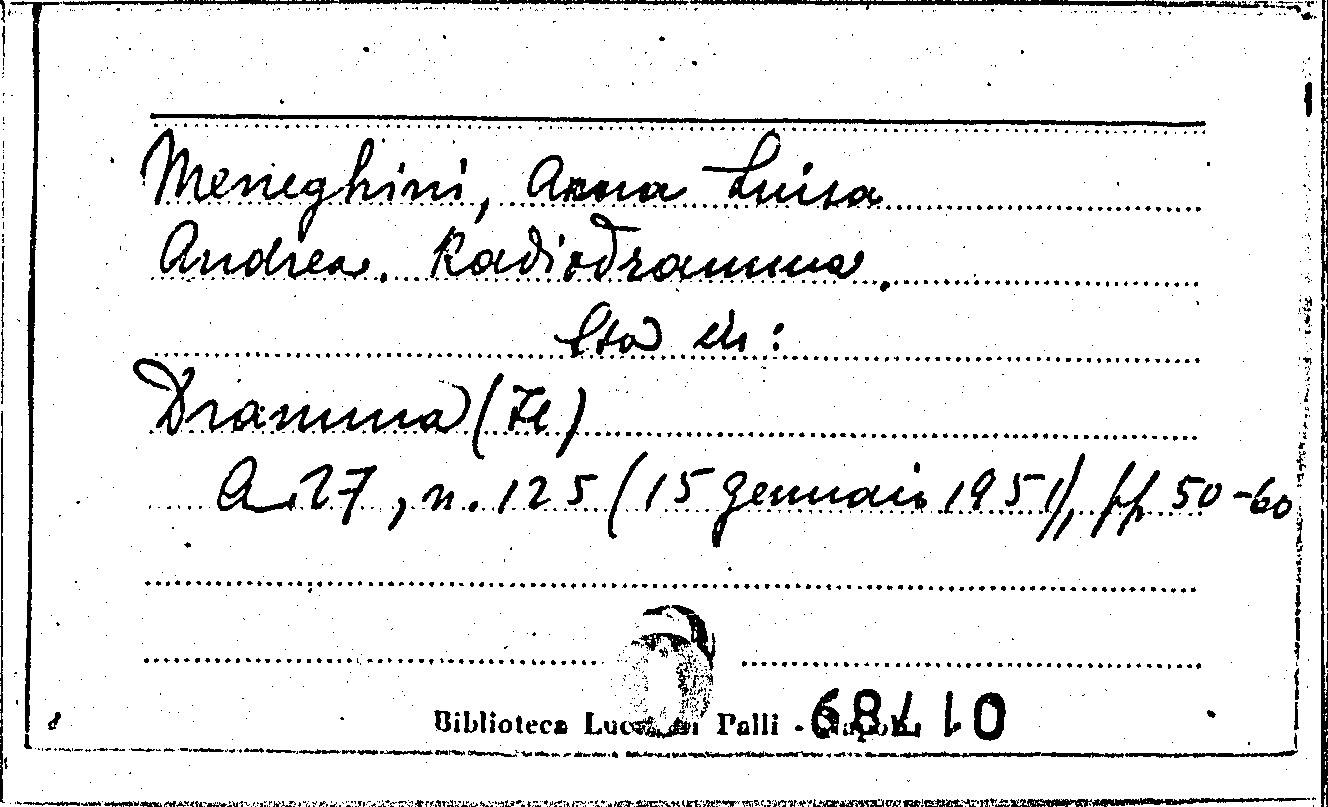 Meneghini, Anna Luisa
Andrea. Radiodramma.
Sta in:
Dramma (Il)
A. 27, n. 125 (15 gennaio 1951), pp 50-60
Biblioteca Lucchesi Palli - Napoli